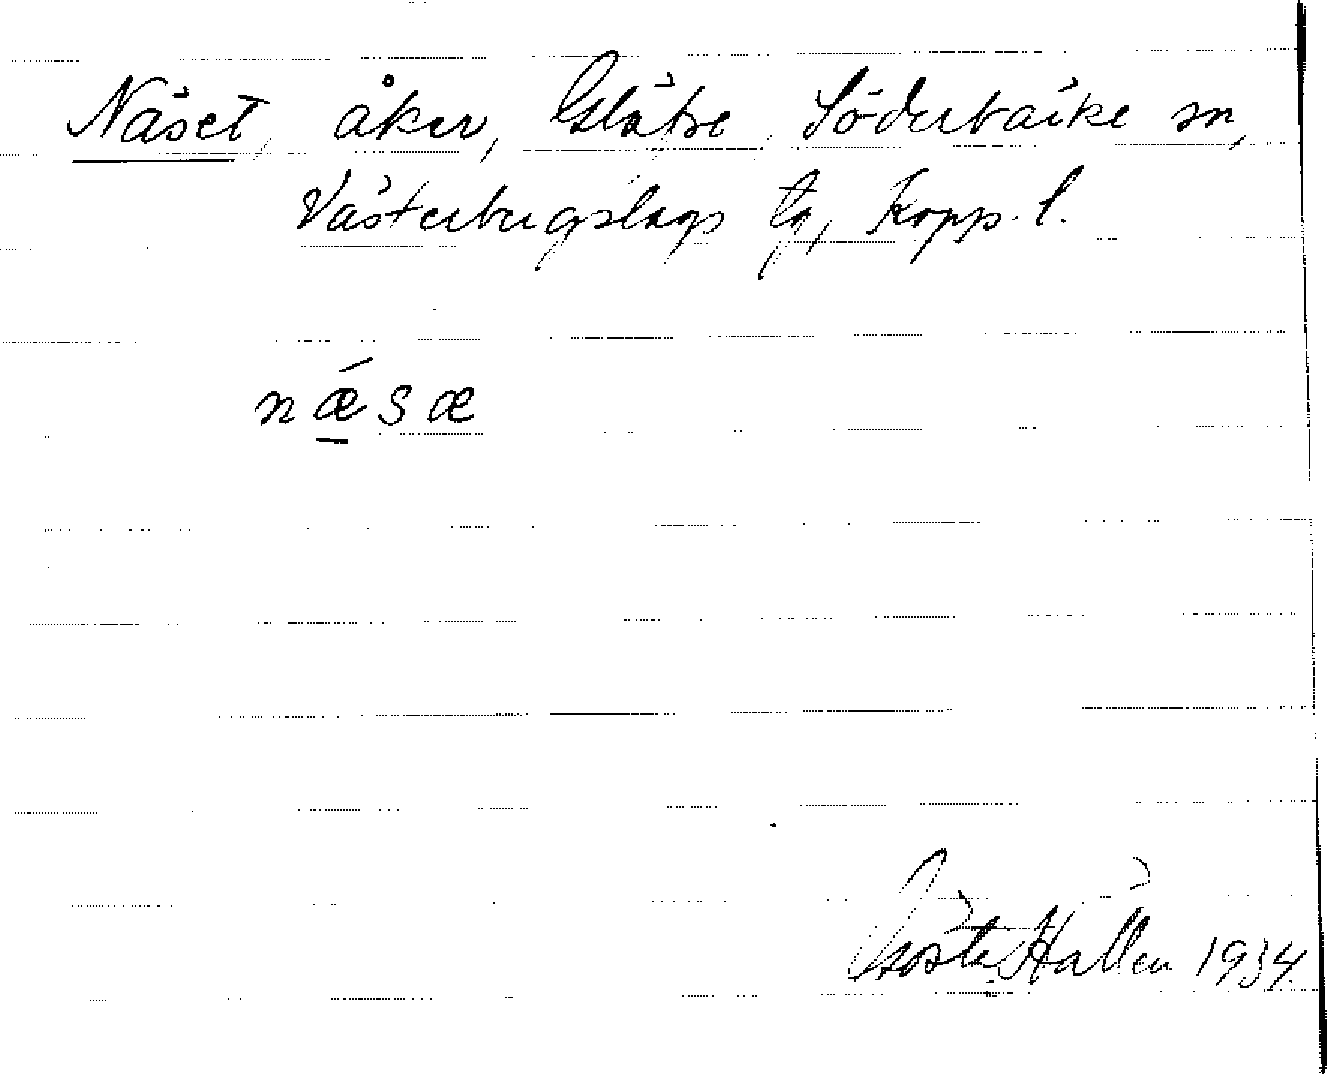 Näset, åker, Gläfse, Söderbärke sn,
Västerbergslags ts, Kopp. l.
nǽsæ
Gösta Hallén 1934.